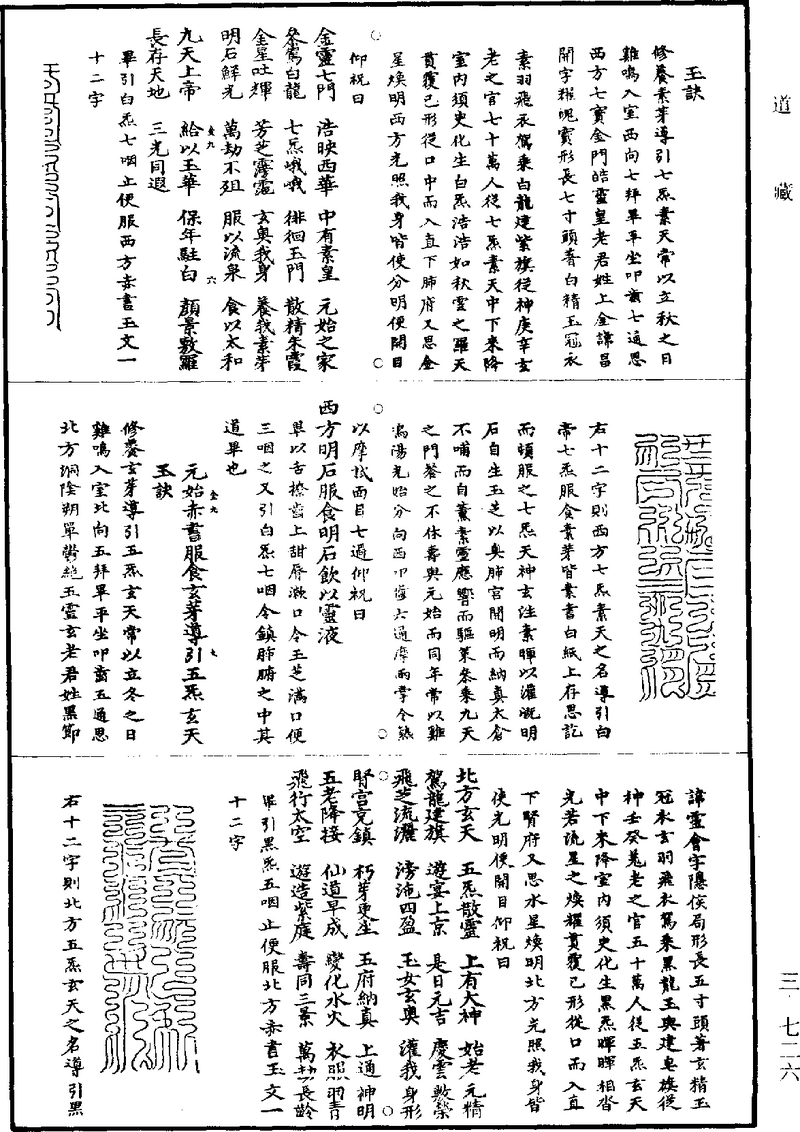 道藏
三·七二六
玉訣
修養素芽導引七炁素天常以立秋之日
雞鳴入室西向七拜畢平坐叩齒七通思
西方七寶金門皓靈皇老君姓上金諱昌
開字曜魄寶形長七寸頭著白精玉冠衣
素羽飛衣駕乘白龍建紫旗從神庚辛玄
老之官七十萬人從七炁素天中下來降
室內須史化生白炁浩浩如秋雲之羅天
貫覆己形從口中而入直下肺府又思金
星煥明西方光照我身皆使分明便開目
仰祝曰
金靈七門 浩映西華 中有素皇 元始之家
參駕白龍 七炁峨峨 徘徊玉門 散精朱霞
金星吐輝 芳芝靄靄 玄奧我身 養我素芽
明石鮮光 萬劫不徂 服以流泉 食以太和
九天上帝 給以玉華 保年駐白 顏景敷羅
長存天地 三光同遐
畢引白炁七咽止便服西方赤書玉文一
十二字
右十二字則西方七炁素天之名導引白
帝七炁服食素芽皆素書白紙上存思訖
而頓服之七炁天神玄注素暉以灌溉明
石自生玉芝以奧肺宮開明而納真太倉
不哺而自薰素靈應響而驅策參乘九天
之門養之不休壽與元始而同年常以雞
鳴陽光始分向西叩齒六通摩兩掌令熱
以摩拭面目七過仰祝曰
西方明石服食明石飲以靈液
畢以舌撩齒上甜脣漱口令玉芝滿口便
三咽之又引白炁七咽令鎮肺腑之中其
道畢也
元始赤書服食玄芽導引五炁玄天
玉訣
修養玄芽導引五炁玄天常以立冬之日
雞鳴入室北向五拜畢平坐叩齒五通思
北方洞陰朔單鬱絕五靈玄老君姓黑節
諱靈會字隱侯局形長五寸頭著玄精玉
冠衣玄羽飛衣駕乘黑龍玉輿建皂旗從
神壬癸菟老之官五十萬人從五炁玄天
中下來降室內須史化生黑炁暉暉相沓
光若流星之煥耀貫覆己形從口而入直
下腎府又思水星煥明北方光照我身皆
使光明便開目仰祝曰
北方玄天 五炁散靈 上有大神 始老元精
駕龍建旗 遊宴上京 是日元吉 慶雲敷榮
飛芝流灑 滂沲四盈 玉女玄奧 灌我身形
腎宮克鎮 朽芽更生 五府納真 上通神明
五老降接 仙道早成 變化水火 衣照羽青
飛行太空 遊造紫庭 壽同三景 萬劫長齡
畢引黑炁五咽止便服北方赤書玉文一
十二字
右十二字則北方五炁玄天之名導引黑